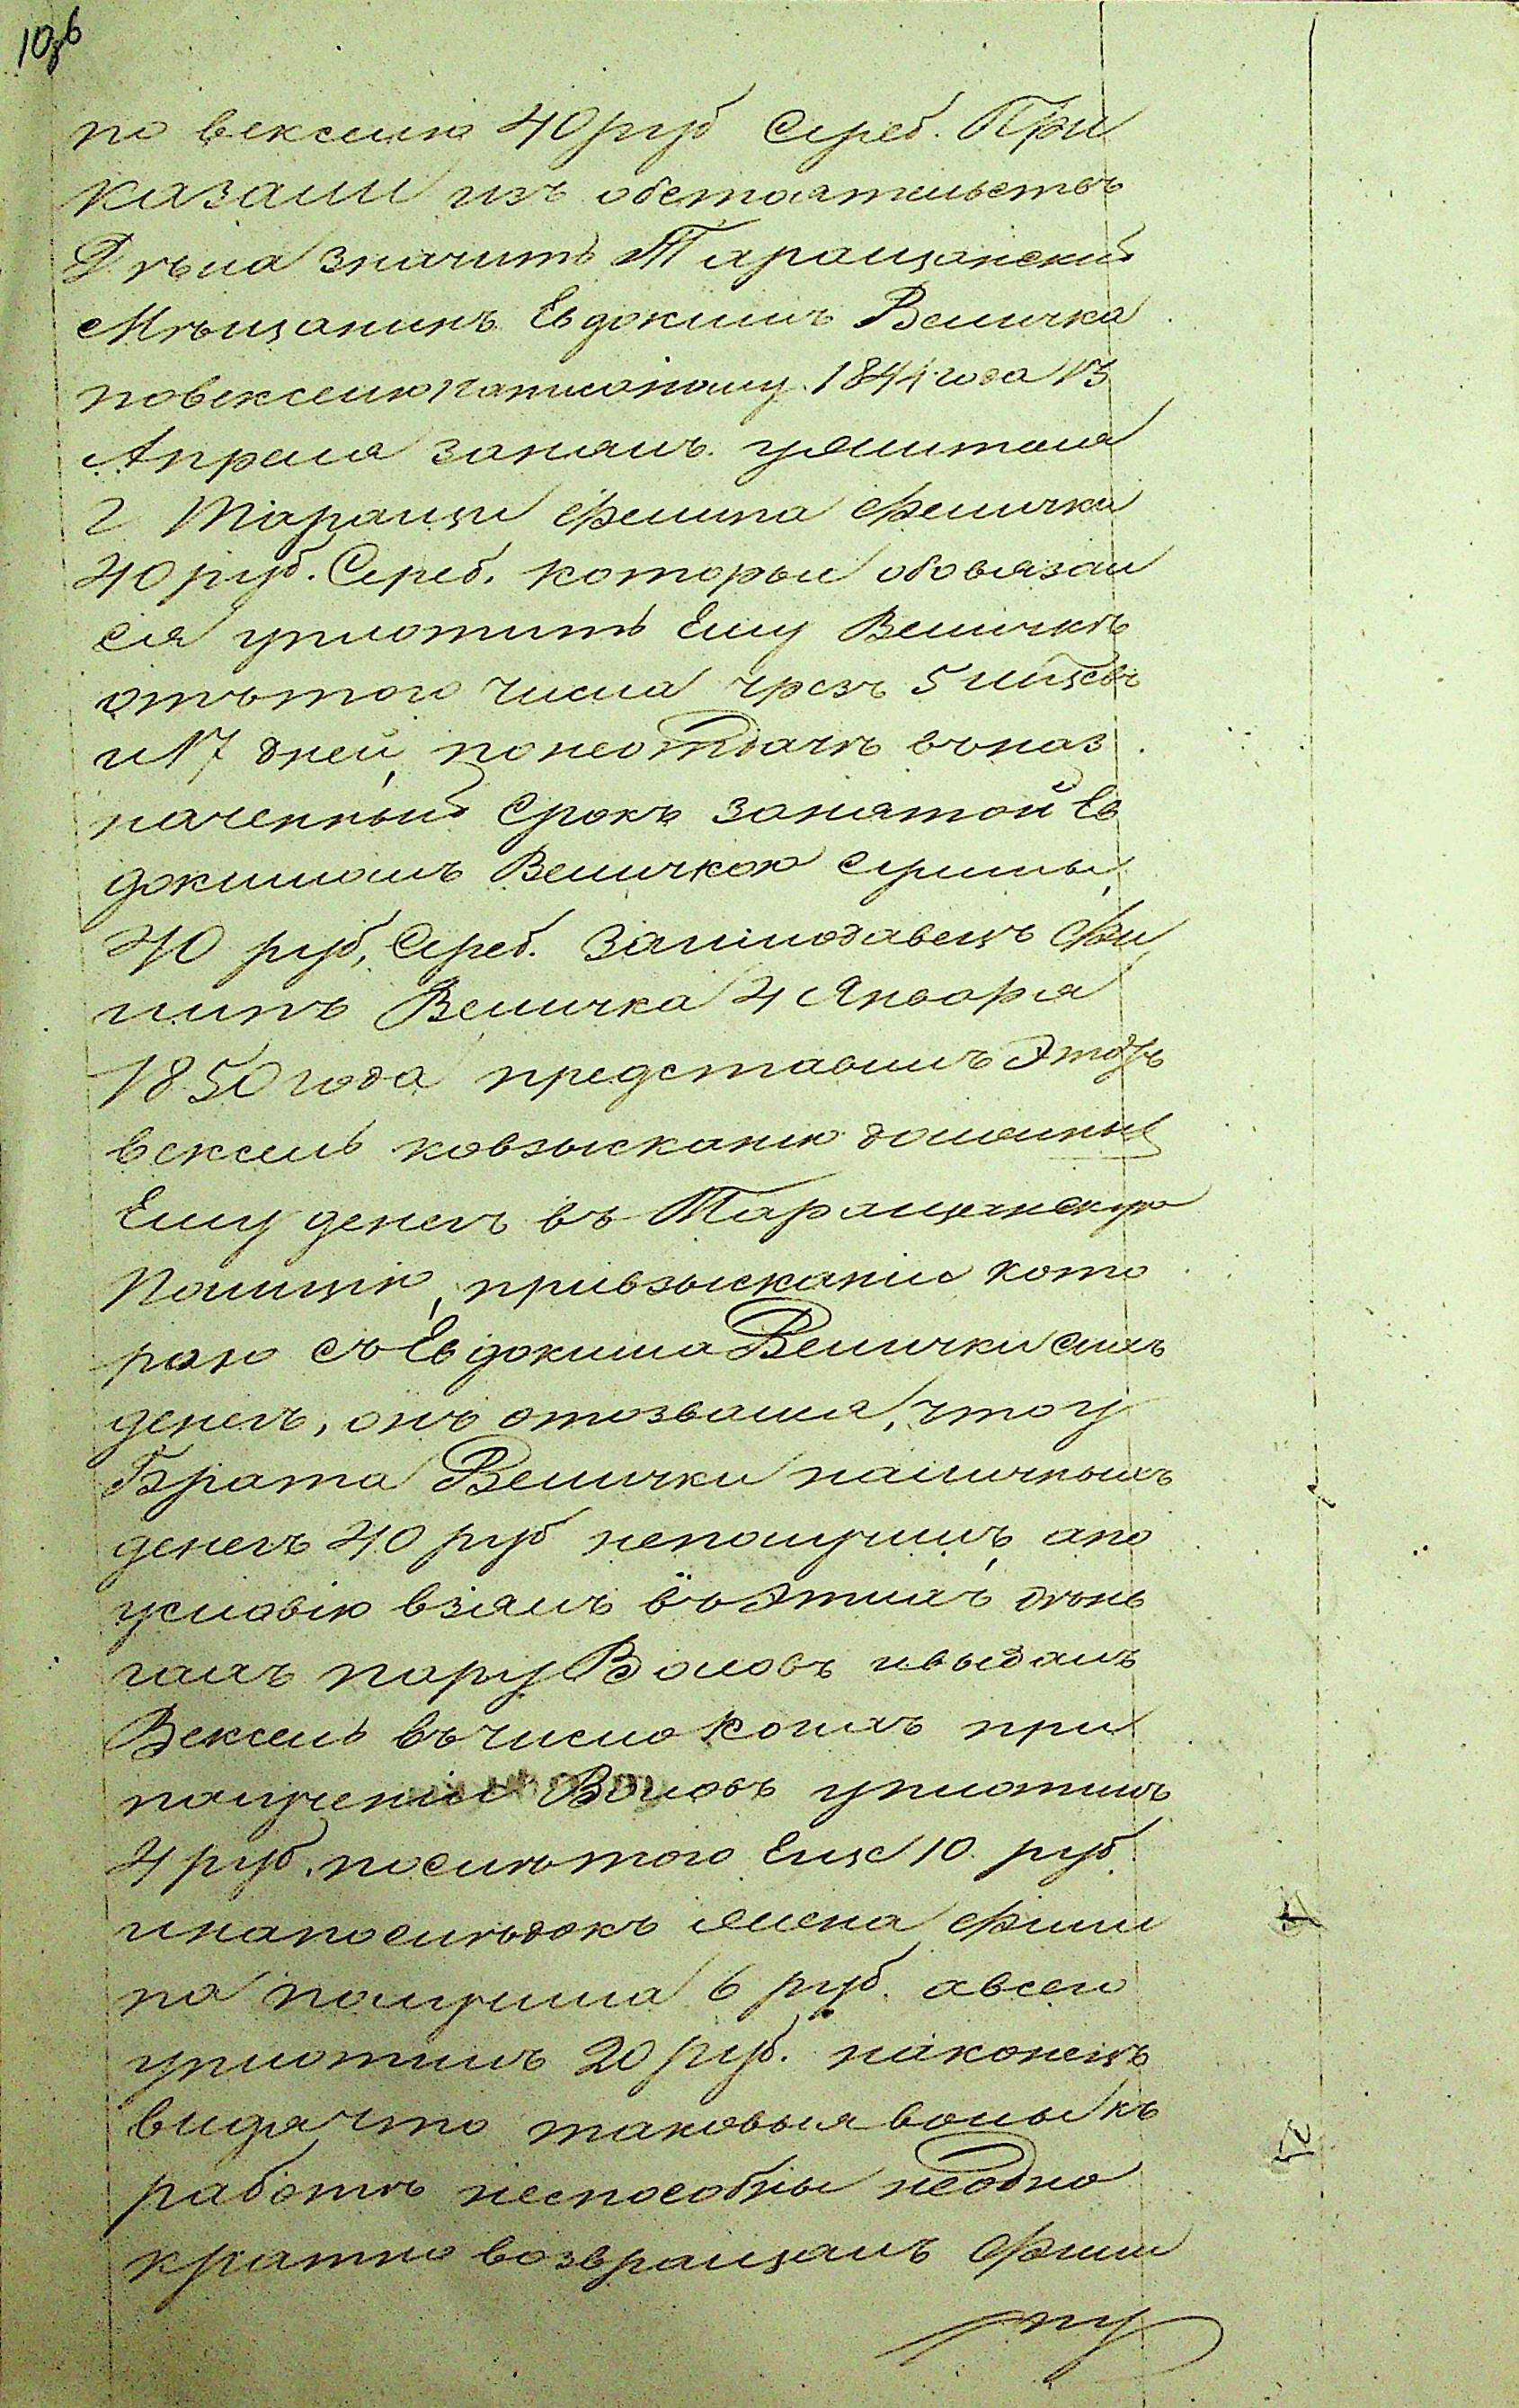 10об
по векселю 40 руб Сереб. При
казали изъ обстоятельствъ
Дѣла значитъ Таращанскій
Мѣщанинъ Евдокимъ Величка
повекселю написанному 1844 года 13
Апреля занялъ ужителя
г Таращи Филипа Велички
40 руб. Сереб. которые обовязал
ся уплотить Ему Величкѣ
отътого числа чрезъ 5 мцсвъ
и 17 дней, понеотдачѣ въназ
наченный Срокъ занятой Ев
докимомъ Величкою суммы,
40 руб, Сереб. Заимодавецъ Фи
липъ Величка 4 Января
1850 года представилъ этотъ
вексель ковзысканію должных
Ему денегъ въ Таращанскую
Полицію, привзысканіи кото
рою съ Евдокима Велички сихъ
денегъ, онъ отозвался, что у
Брата Велички наличныхъ
денегъ 40 руб неполучилъ, апо
условію взялъ въ этихъ день
гахъ пару Воловъ ивыдалъ
Вексель въчисло коихъ при
полученіи Воловъ уплотилъ
4 руб. послѣтого Еще 10. руб.
инапослѣдокъ жена Фили
па получила 6 руб. авсего
уплотилъ 20 руб. наконецъ
видя что таковыя волы къ
работѣ неспособны неодно
кратно возвращалъ Фили
пу